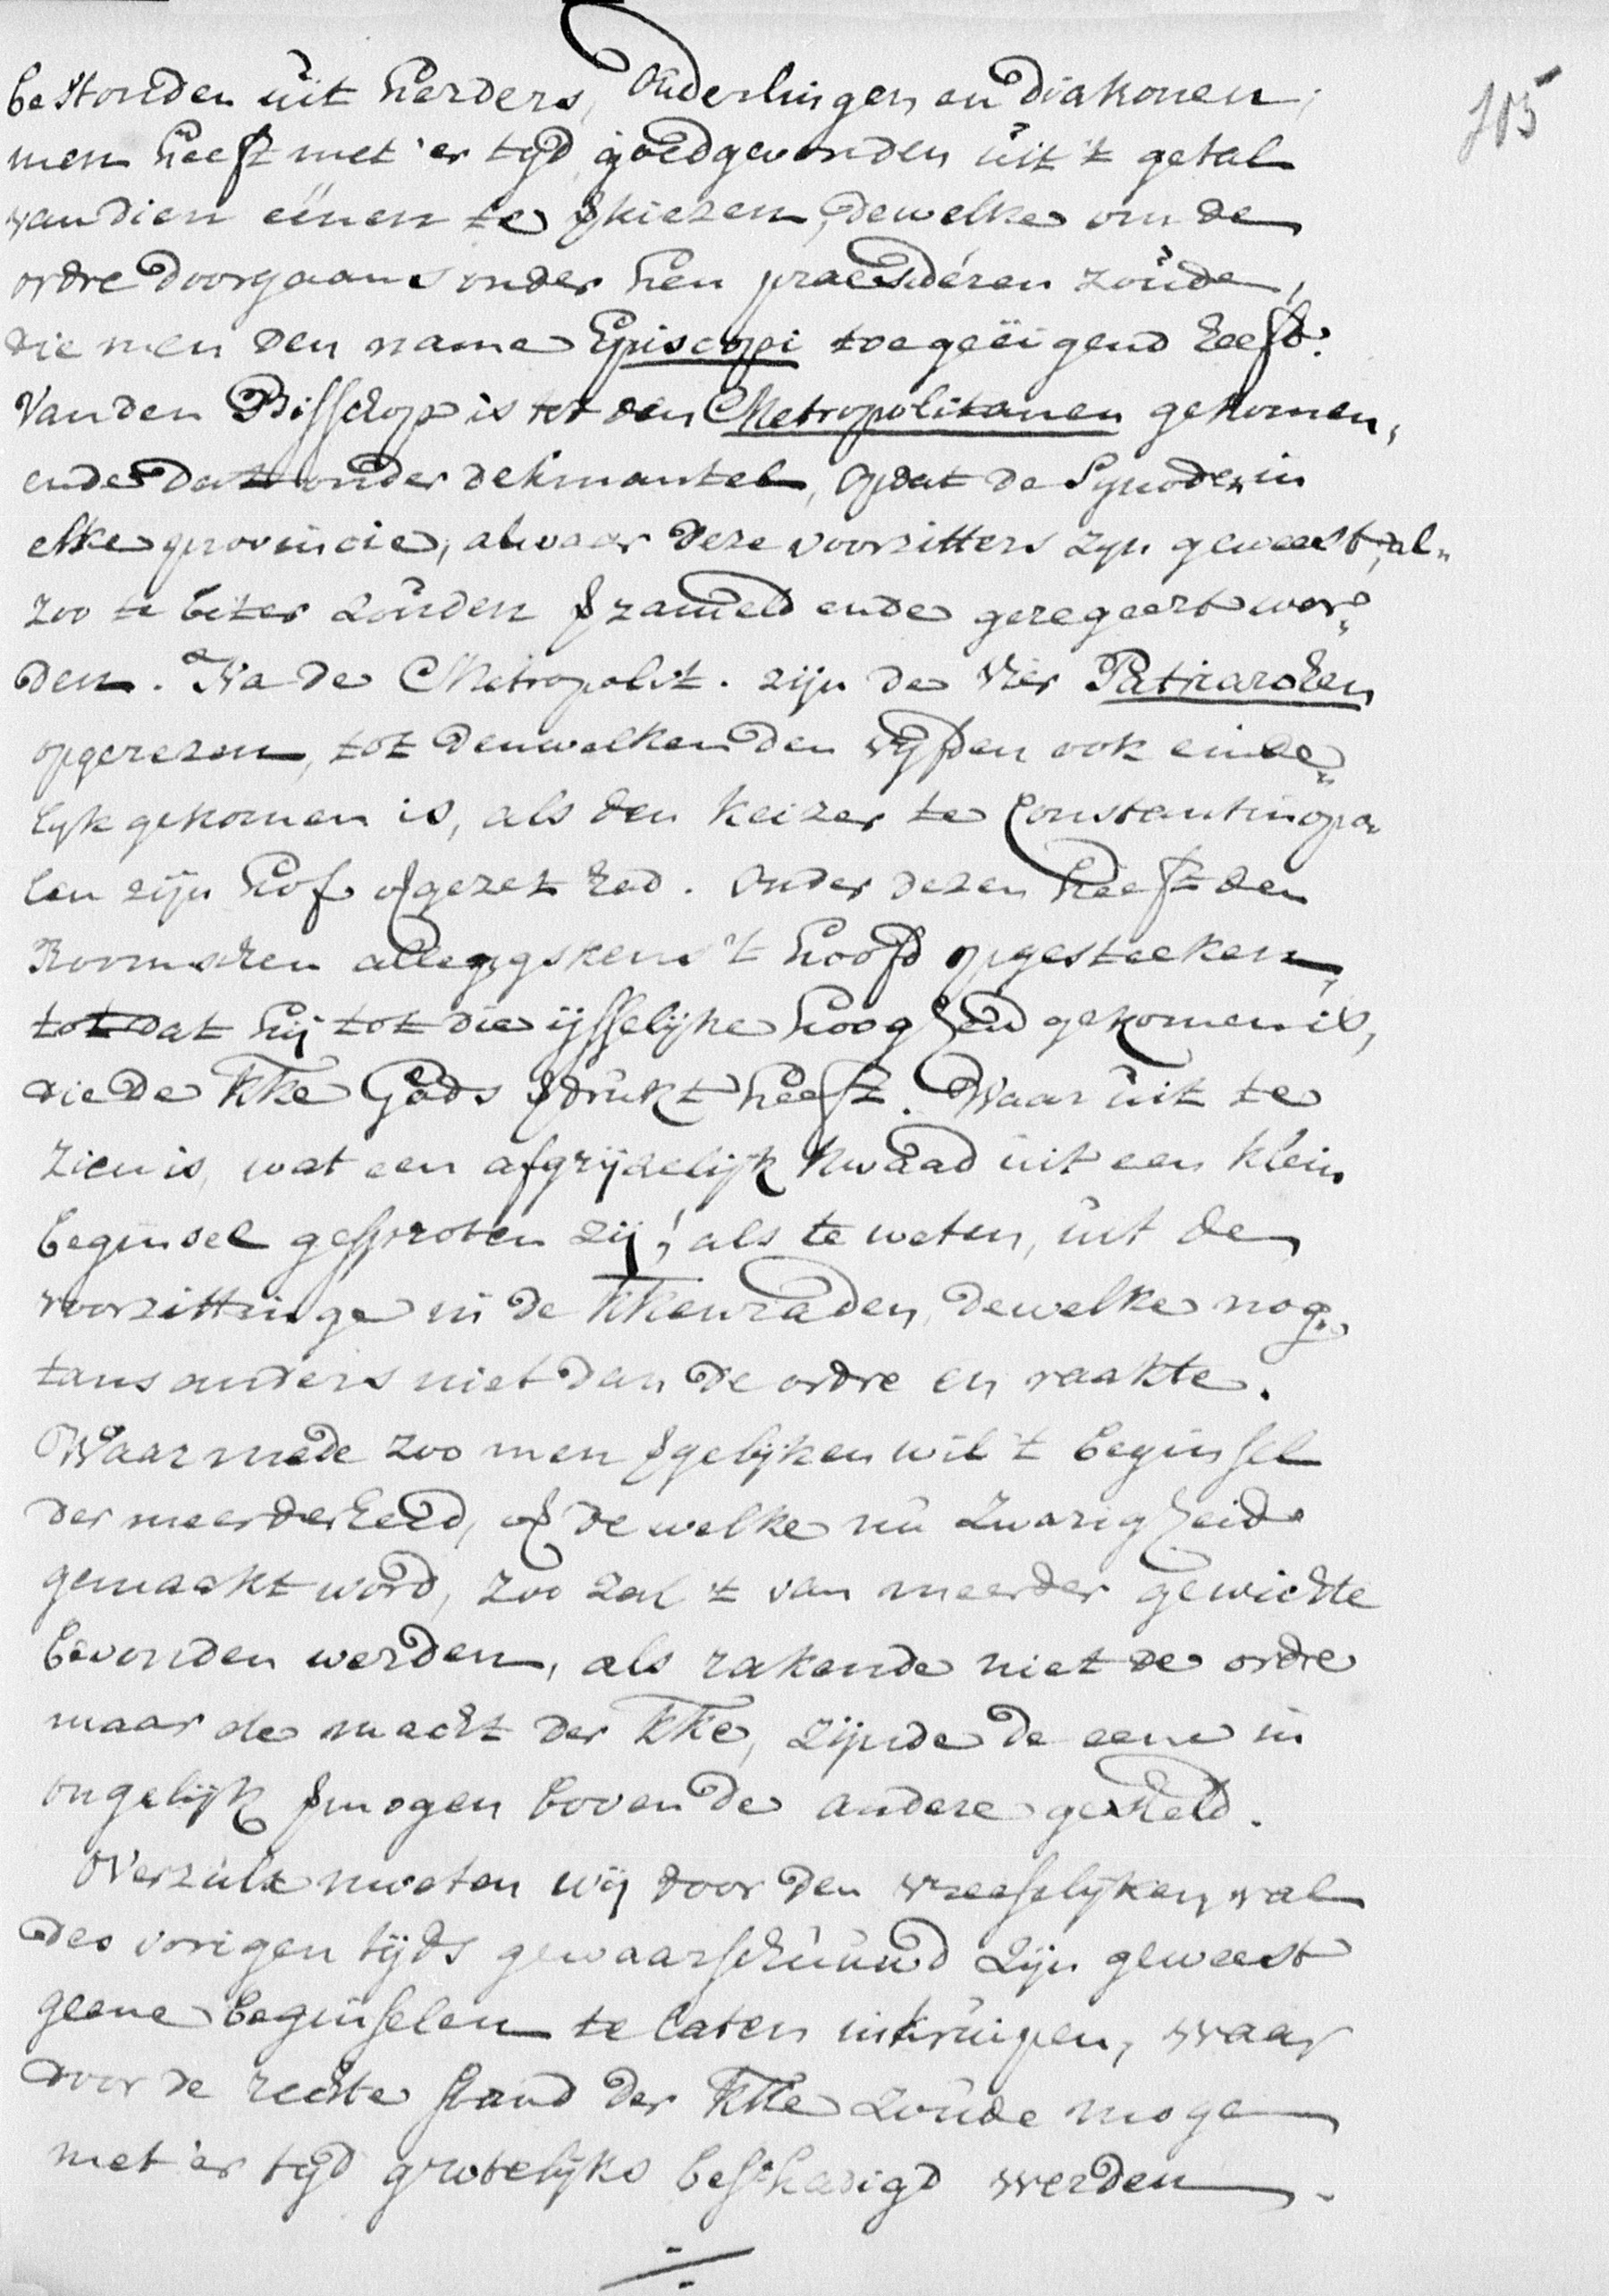 105
bestonden uit herders, Ouderlingen en diakonen;
men heeft met 'er tyd goedgevonden uit 't getal
van dien eënen te &kiezen, dewelke om de
ordre doorgaans onder hen praesidéren zoude,
die men den name Episcopi toegeëigend heeft.
Van den Bisschop is tot den Metropolitanen gekomen,
ende dat onder dekmantel, opdat de Synoden in
elke provincie, alwaar deze voorzitters zyn geweest, al„
zoo te beter zouden &zameld ende geregeert wor„
den. Na de Metropolit. zijn de vier Patriarchen
opgerezen, tot denwelken den vyfden ook einde„
lyk gekomen is, als den keizer te Constantinopo„
len zijn hof &gezet had. Onder dezen heeft den
Roomschen allengskens 't hoofd opgesteeken,
tot dat hij tot die ijsselijke hoogheid gekomen is,
die de kke Gods &drukt heeft. Waar uit te
zien is, wat een afgrijselijk kwaad uit een klein
beginsel gesproten zij! als te weten, uit de
voorzittinge in de kkenraden, dewelke nog„
tans anders niet dan de ordre en raakte.
Waarmede zoo men &gelijken wil 't beginsel
der meerderheid, of dewelke nu zwarigheid
gemaakt word, zoo zal 't van meerder gewichte
bevonden werden, als rakende niet de ordre
maar de macht der kke, zijnde de eene in
ongelijk &mogen boven de andere gesteld.
Overzulx moeten wij door den vreeselijken val
des vorigen tijds gewaarschuuwd zijn geweest
geene beginselen te laten inkruipen, waar
door de rechte stand der kke zoude mogen
met 'er tijd grotelijks beschadigd werden.